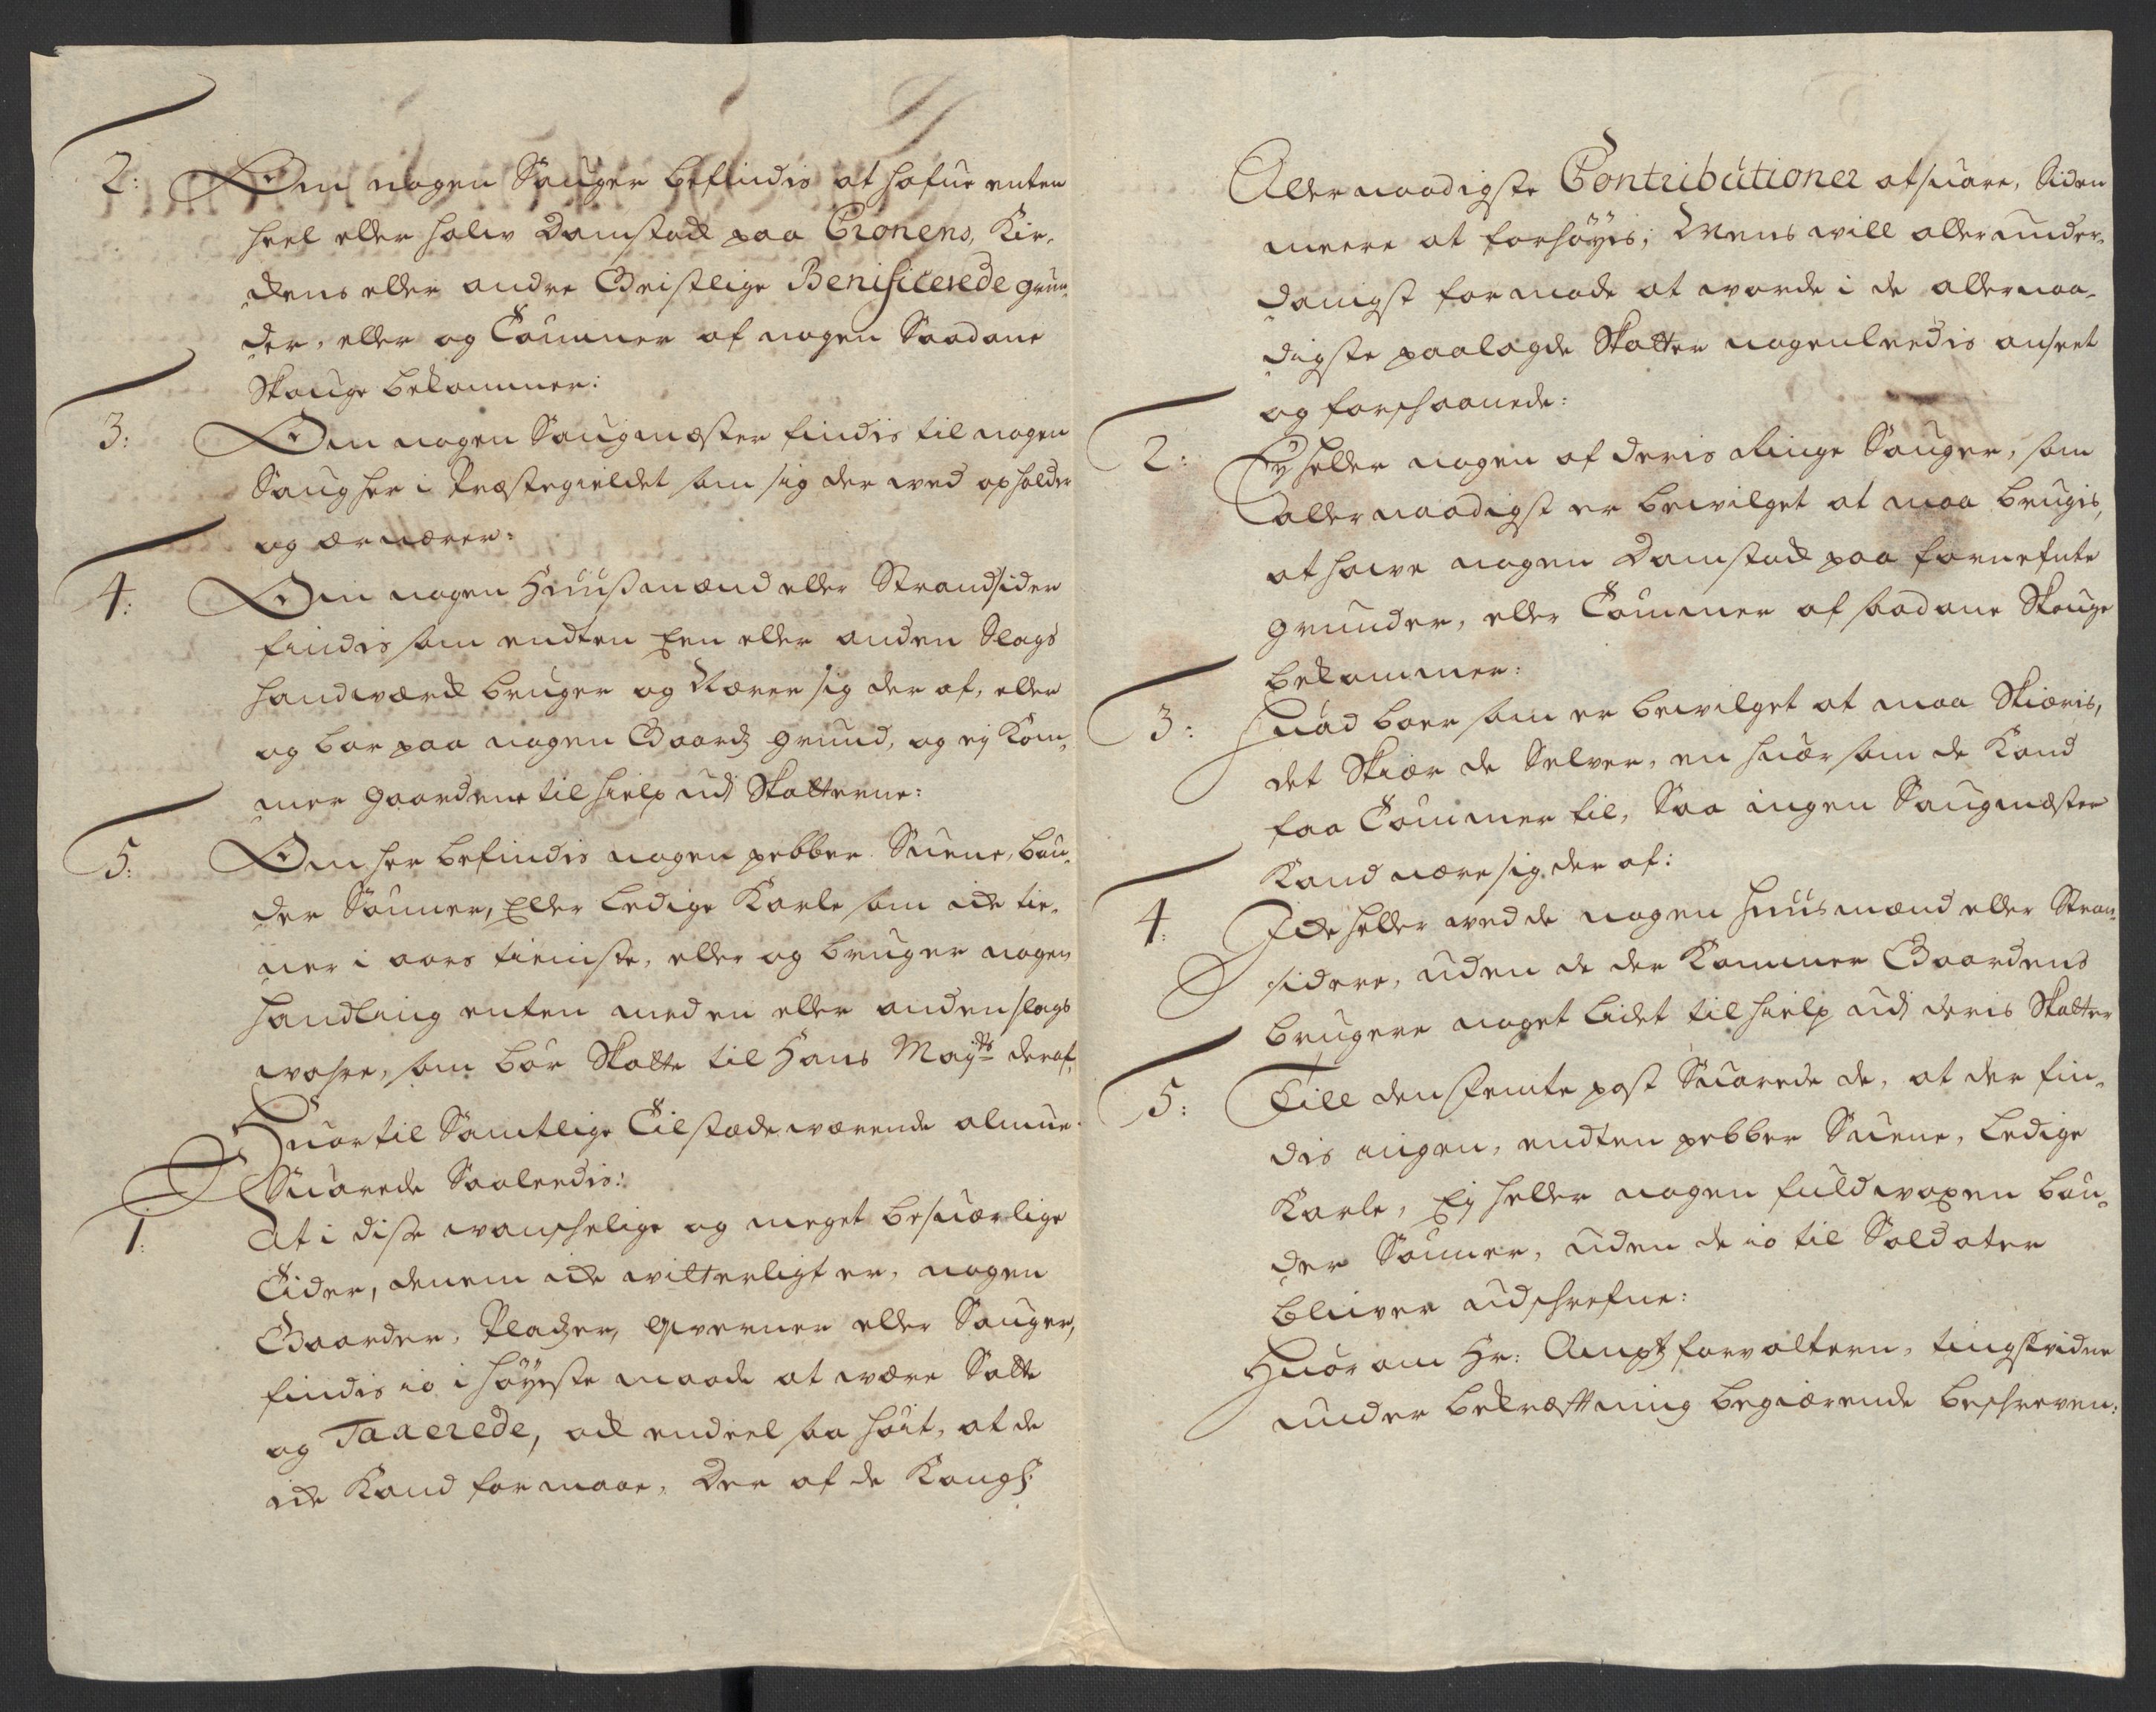 2: Om nogen Sauger befindis at hafue enten
heel eller halv Damstock paa Cronens, Kir-
ckens eller andre Geistlige Benificerede grun-
der, eller og Tømmer af nogen Saadane
Skouge bekommer:
3: Om nogen Saugmester findis til nogen
Saug her i Præstegieldet som sig der wed opholder
og ernærer:
4: Om nogen Huusmænd eller Strandsider
findis som endten Een eller anden Slags
handwærck bruger og Nærer sig der af, eller
og boe paa nogen Gaards grund, og ej Kom-
mer gaardene til hielp udj Skatterne:
5: Om her befindis nogen pebber Suene, bøn-
der Sønner, Eller Ledige Karle som icke tie-
ner i aars tieniste, eller og bruger nogen
handling enten med en eller anden slags
wahre, som bør Skatte til Hans Mayts deraf,
Huortil Samtlige Tilstedewærende almue
Suarede Saaledis:
1: At i disse wanschelige og meget besuærlige
Tider, dennem icke witterligt er, nogen
Gaarder, Pladzer, Qwerner eller Sauger,
findis io i høyeste maade at være Satte
og Taxerede, ock endeel saa høit, at de
icke Kand formaae, Der af de Kongl:
Allernaadigste Contributioner at suare, Siden
meere at forhøyes; Mens will allerunder-
danigst formode at worde i de allernaa-
digste paalagde Skatter nogenleedis anseet
og forschaanede:
2: Ey heller nogen af deris Ringe Sauger, som
allernaadigst er bewilget at maa brugis,
at hawe nogen Damstock paa fornefnte
grunder, eller Tømmer af saadane Skouge
bekommer:
3: Huad boer som er bewilget at maa Skiæris,
det Skiær de Selver, en huær som de Kand
faa Tømmer til, Saa ingen Saugmester
Kand nære sig der af:
4: Icke heller wed de nogen huusmænd eller Stran-
sidere, uden de der Kommer Gaardens
brugere noget Lidet til hielp udj deris Skatter
5: Till den femte post Suarede de, at der fin-
dis ingen, endten pebber Suene, Ledige
Karle, Ej heller nogen fuldwoxen bøn-
der Sønner, uden de io til Soldater
bliver udschrefne:
Huorom Hr: Ampt forvaltern, tingswidne
under bekræftning begiærende beschreven: